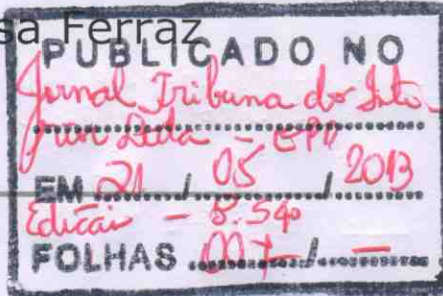 sa Ferraz
PUBLICADO NO
Jornal Tribuna do Inte-
rior
EM 21 / 05 / 2013
Edição - 8.540
FOLHAS 07 / -